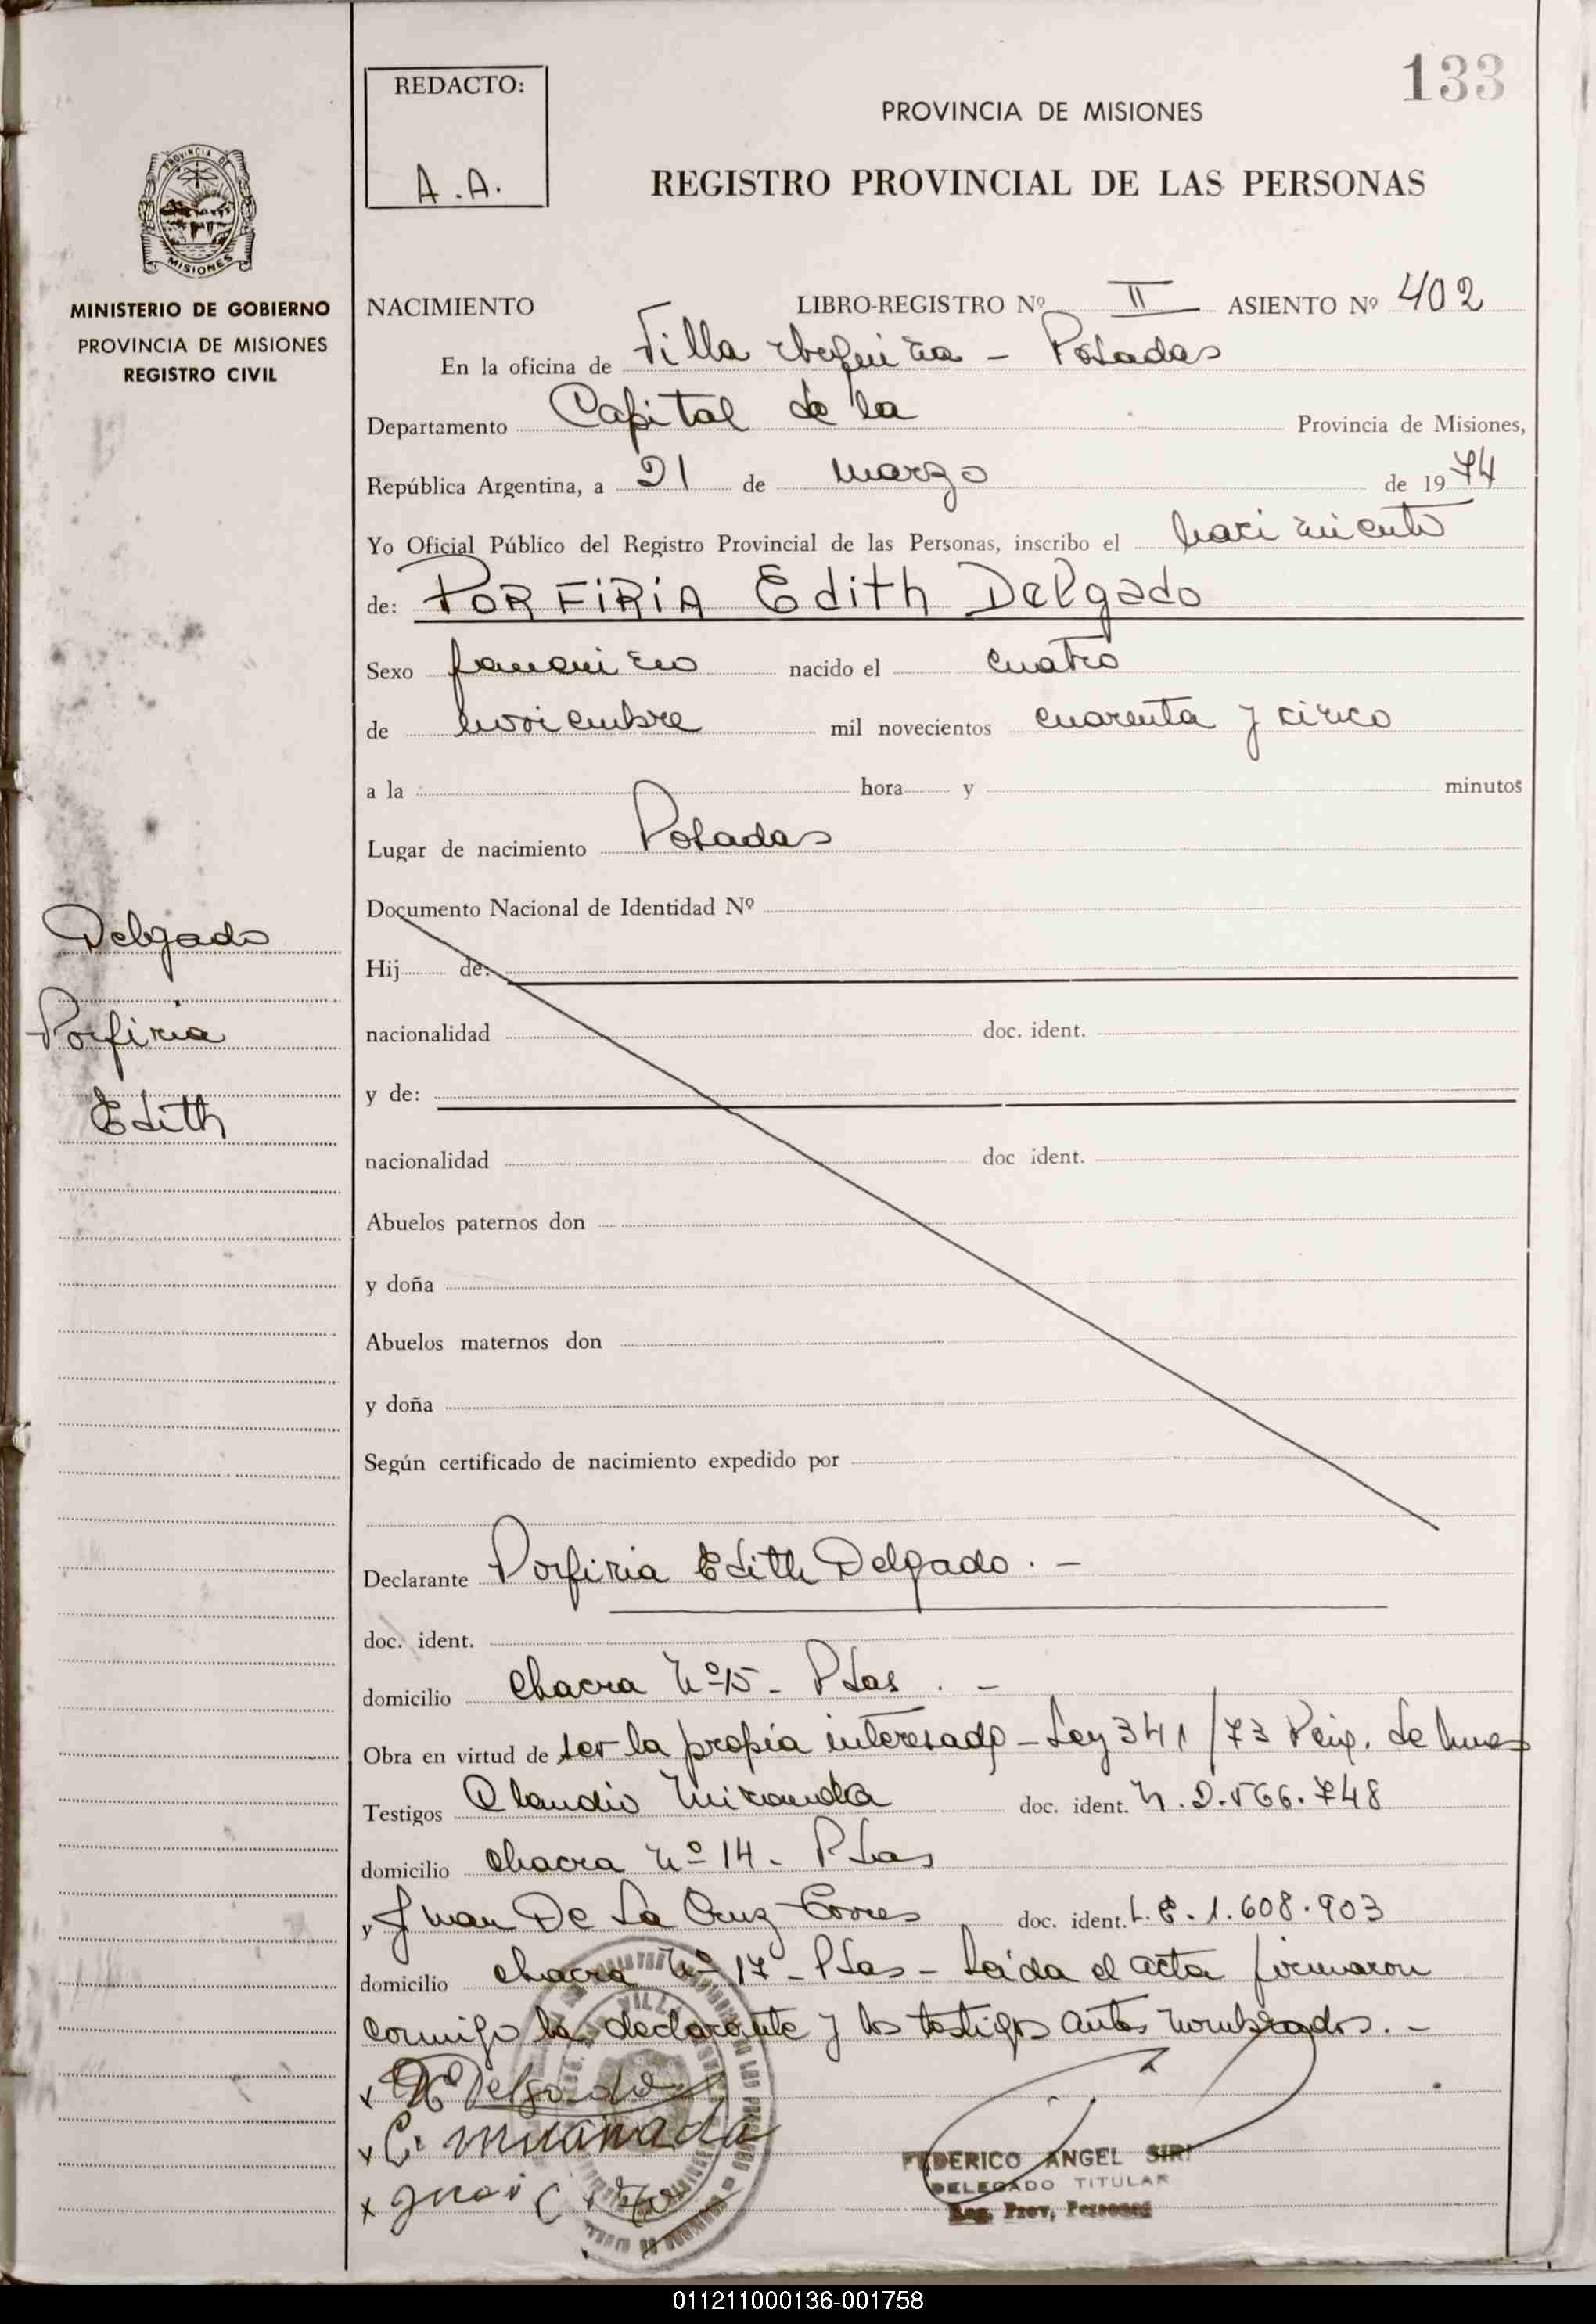 133
REDACTO:
A.A.
PROVINCIA DE MISIONES
REGISTRO PROVINCIAL DE LAS PERSONAS
PROVINCIA DE
MISIONES
MINISTERIO DE GOBIERNO
PROVINCIA DE MISIONES
REGISTRO CIVIL
NACIMIENTO LIBRO-REGISTRO Nº II ASIENTO Nº 402
En la oficina de Villa - Posadas
Departamento Capital de la Provincia de Misiones,
República Argentina, a 21 de marzo de 1974
Yo Oficial Público del Registro Provincial de las Personas, inscribo el nacimiento
de: PORFIRIA Edith Delgado
Sexo femenino nacido el cuatro
de noviembre mil novecientos cuarenta y cinco
a la hora y minutos
Lugar de nacimiento Posadas
Documento Nacional de Identidad Nº
Delgado
Porfiria
Edith
Hij de:
nacionalidad doc. ident.
y de:
nacionalidad doc ident.
Abuelos paternos don
y doña
Abuelos maternos don
y doña
Según certificado de nacimiento expedido por
Declarante Porfiria Edith Delgado . -
doc. ident.
domicilio Chacra Nº 15 - Pdas . -
Obra en virtud de ser la propia interesada - Ley 341/73
Testigos Claudio Miranda doc. ident. 566.748
domicilio chacra nº 14 - Pdas
y Juan De La Cruz Torres doc. ident. L.E. 1.608.903
domicilio chacra Nº 17 - Pdas - Leída el acta firmaron
conmigo la declarante y los testigos antes nombrados. -
x Delgado
x C. Miranda
x Juan C
FEDERICO ANGEL SIRI
DELEGADO TITULAR
Reg. Prov. Personas
011211000136-001758